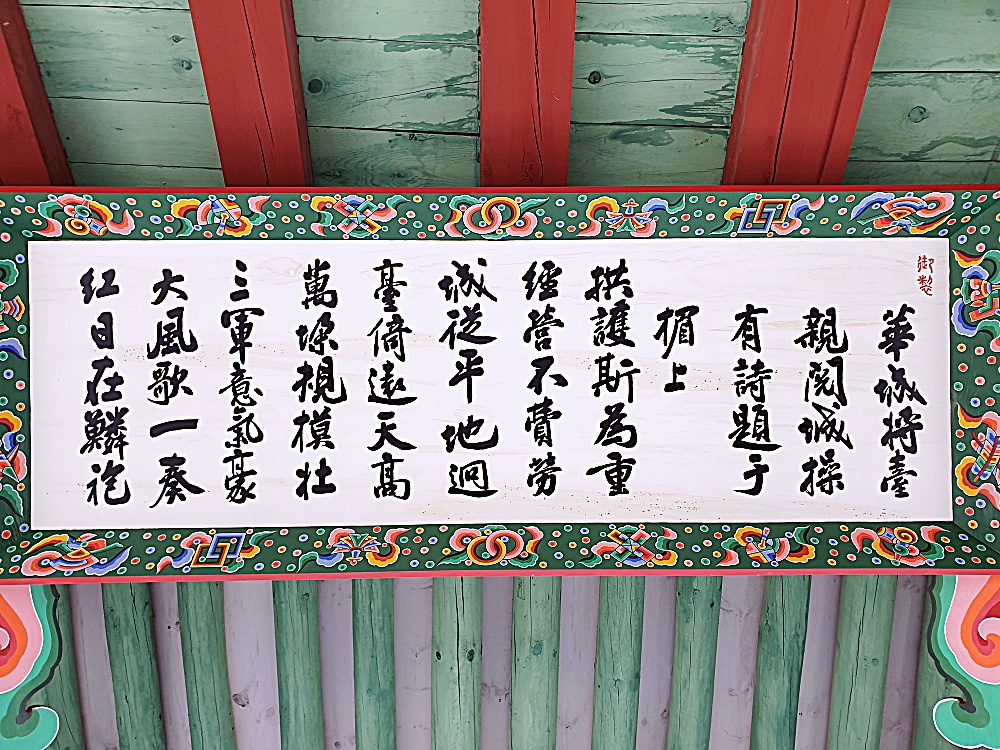 御製
華城將臺
親閱城操
有詩題于
楣上
拱護斯為重
經營不費勞
城從平地迥
臺倚遠天高
萬垜䂓模壯
三軍意氣豪
大風歌一奏
紅日在鱗袍